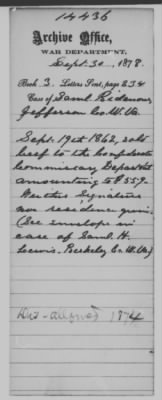 14436
Archive Office,
WAR DEPARTMENT,
Sept. 30, 1878.
Book 3. Letters Sent, page 234
Case of Saml. Ridenour,
Jefferson Co. W. Va.
Sept. 19th 1862, sold
beef to the Confederate
Commissary Department
amounting to $559.
Neither Signature
nor residence given.
(See envelope in
case of Saml. H.
Lewis. Berkeley Co. W. Va.)
174